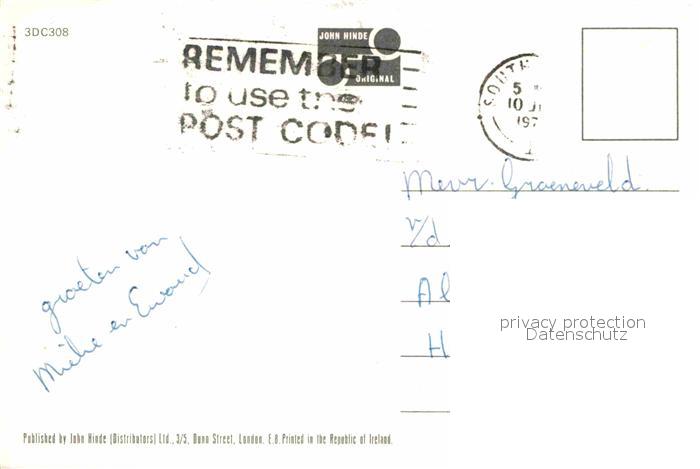 3DC308
JOHN HINDE
ORIGINAL
REMEMBER
to use the
POST CODE!
SOUTH
5
10 J
197
Mevr. Groeneveld.
v/d
Al
H
groeten van
Mieke en Ewoud
privacy protection
Datenschutz
Published by John Hinde (Distributors) Ltd., 3/5, Dunn Street, London, E.8. Printed in the Republic of Ireland.